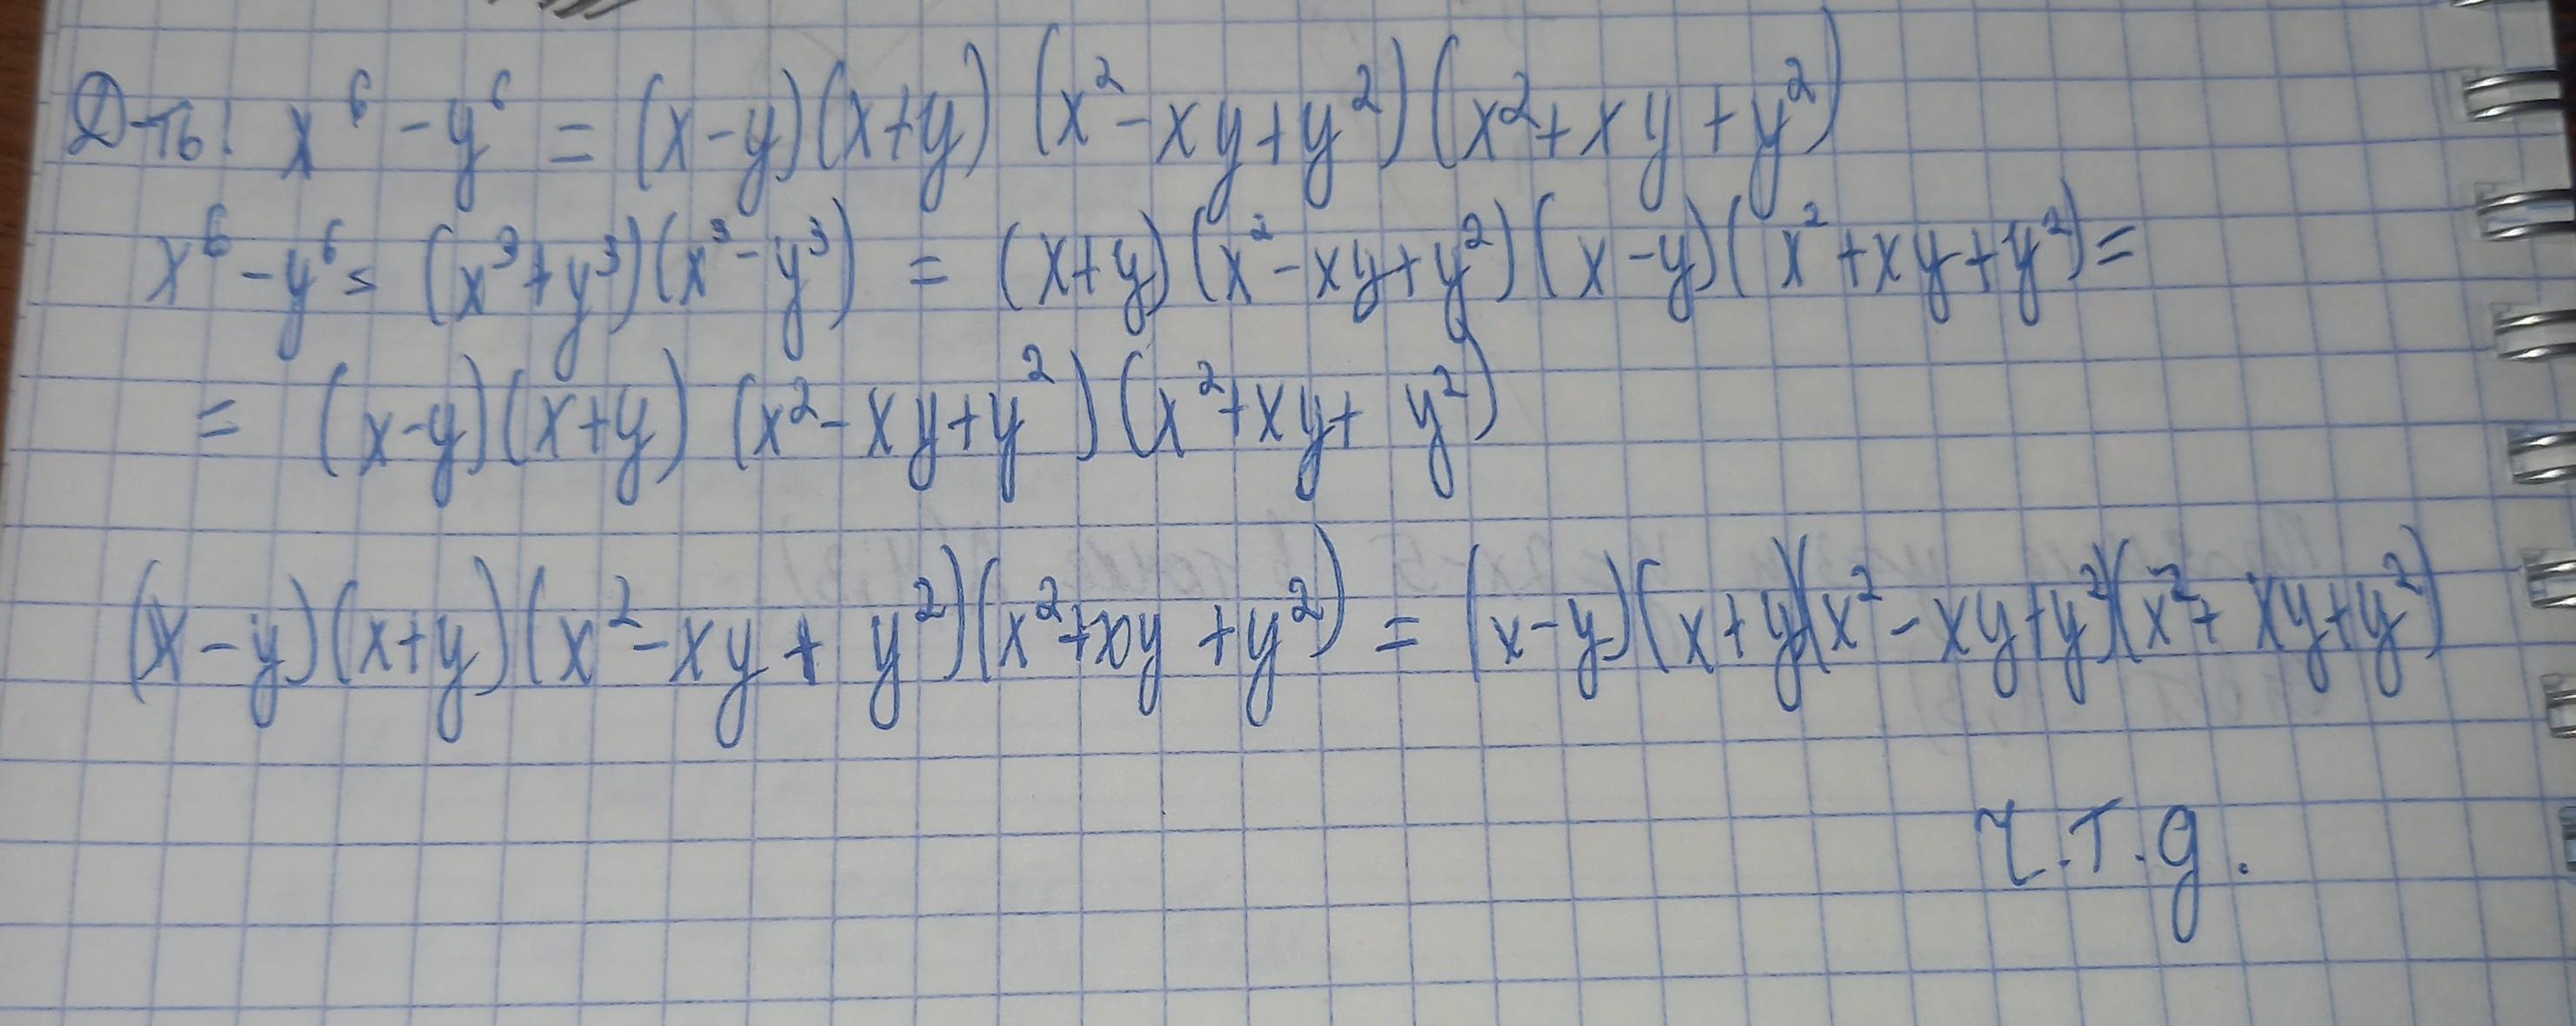 Д-ть! x⁶ - y⁶ = (x-y)(x+y)(x²-xy+y²)(x²+xy+y²)
x⁶ - y⁶ = (x³+y³)(x³-y³) = (x+y)(x²-xy+y²)(x-y)(x²+xy+y²) =
= (x-y)(x+y)(x²-xy+y²)(x²+xy+y²)
(x-y)(x+y)(x²-xy+y²)(x²+xy+y²) = (x-y)(x+y)(x²-xy+y²)(x²+xy+y²)
ч.т.д.